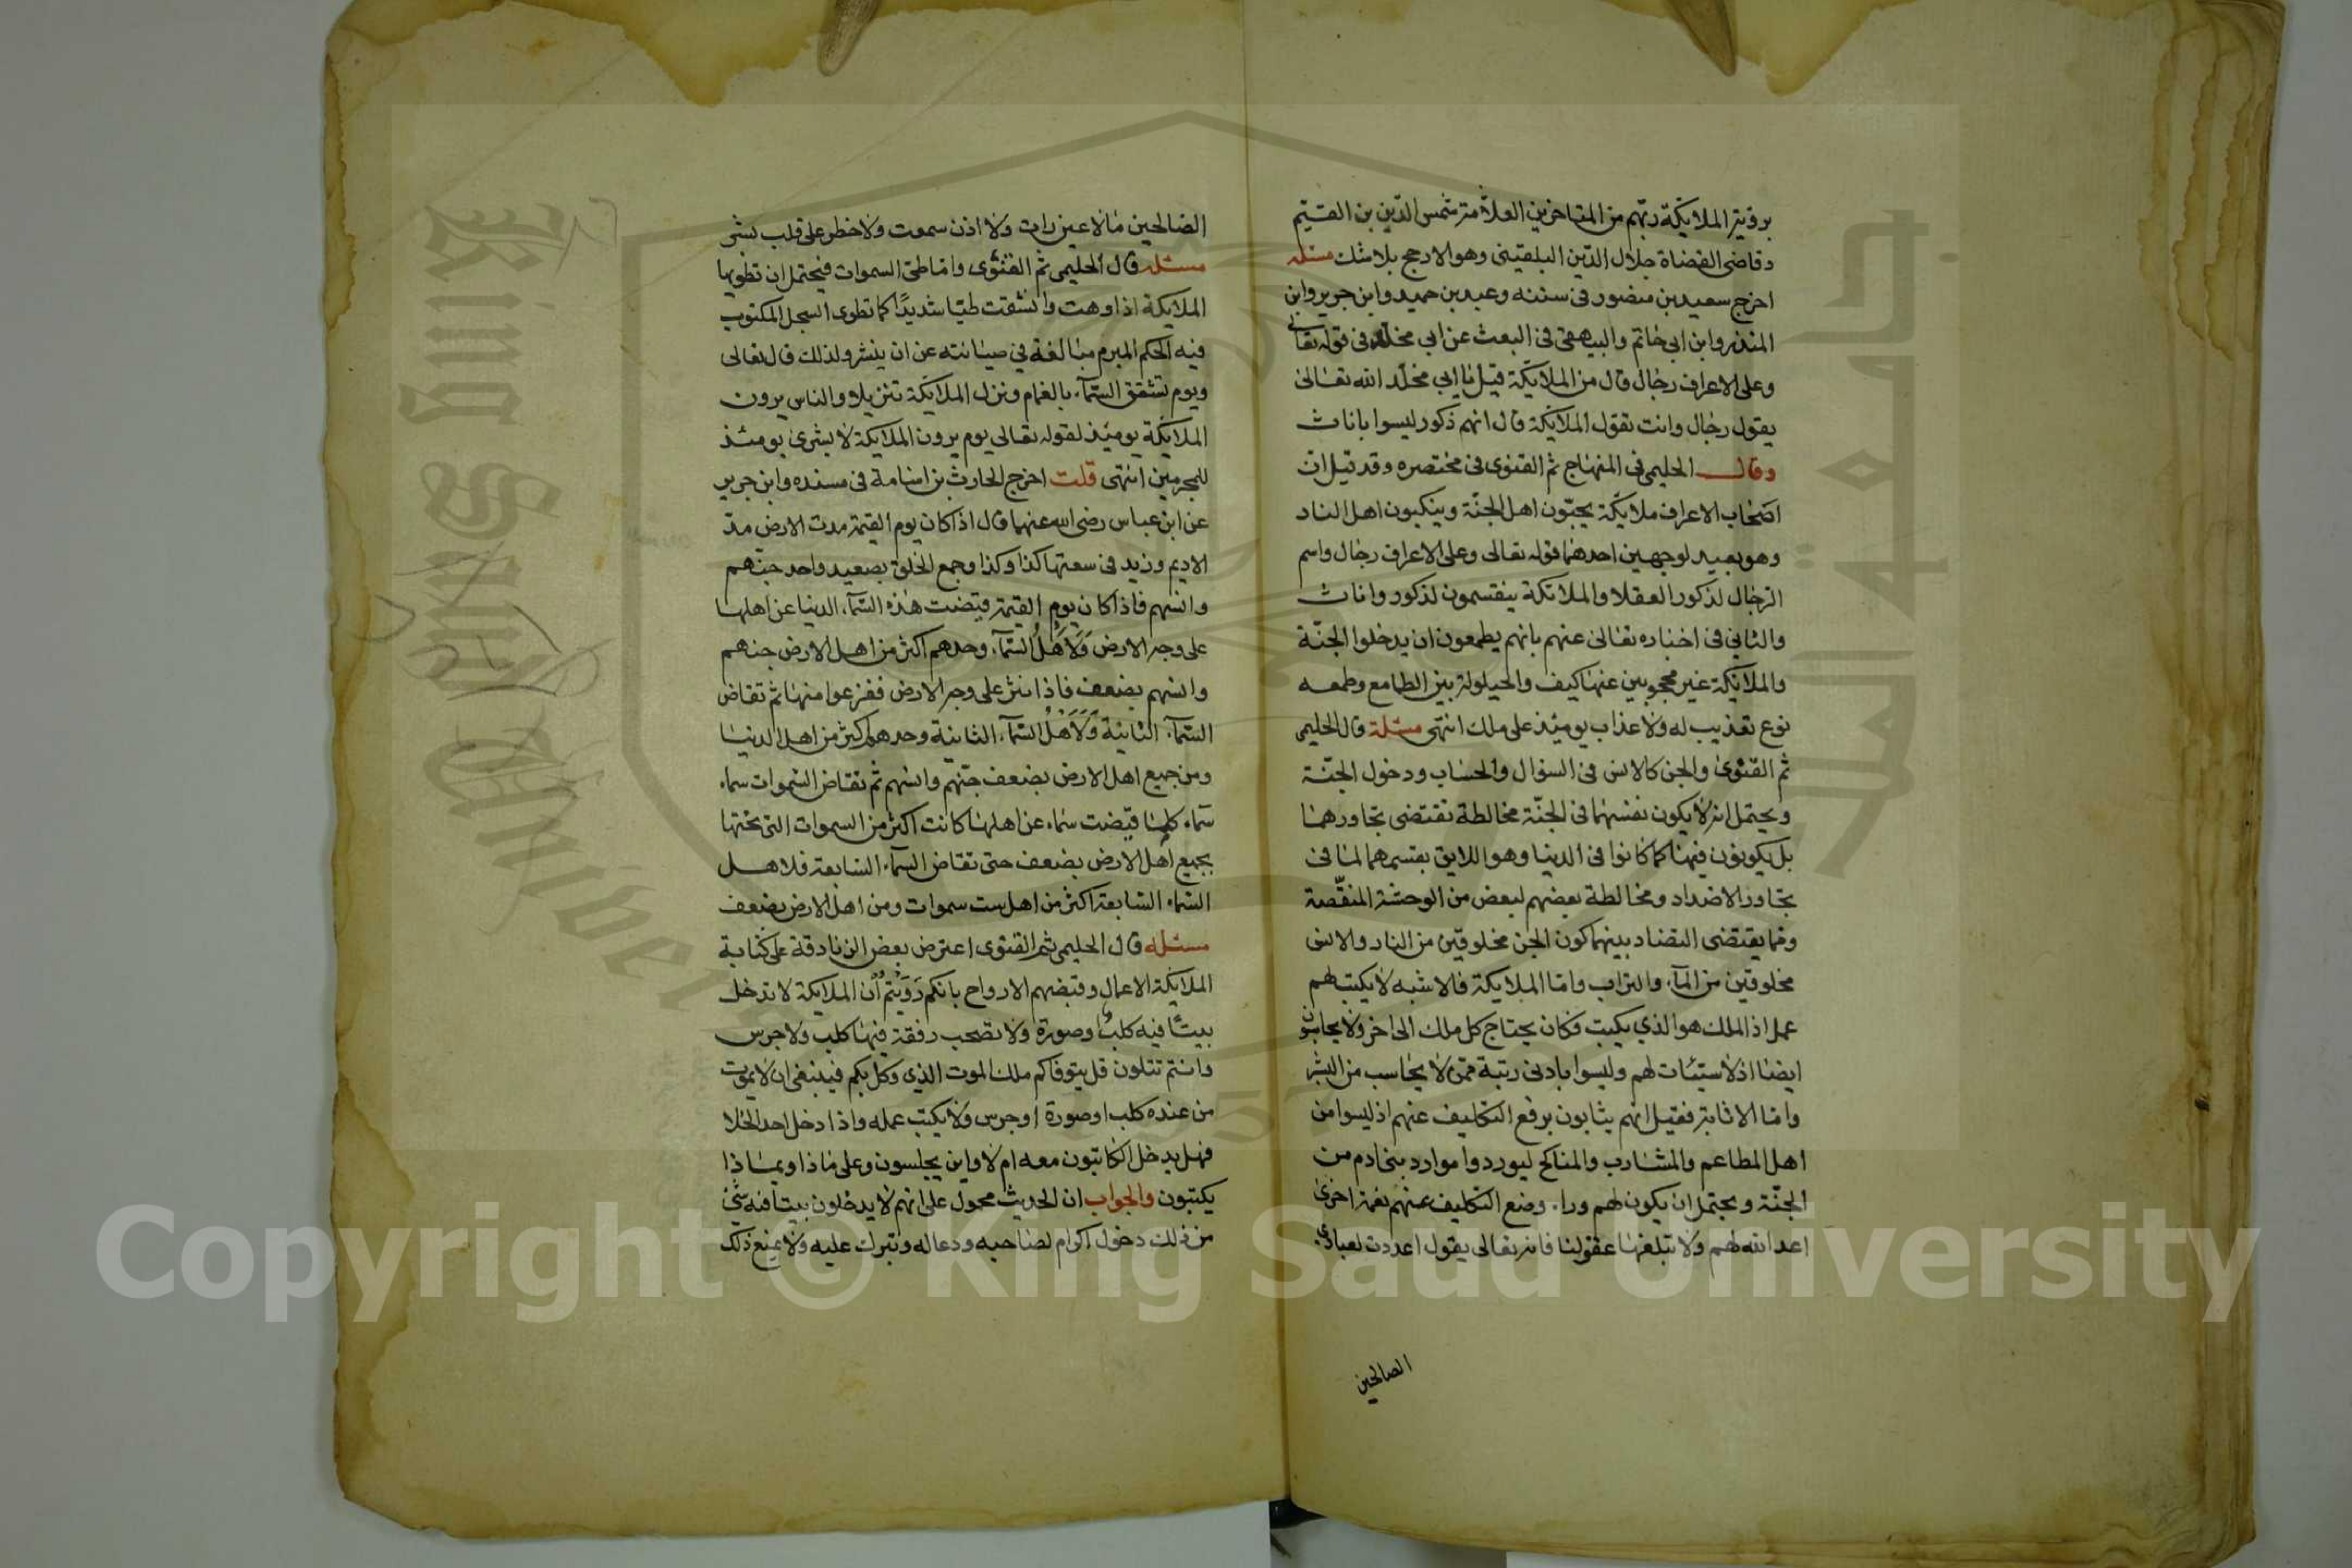 برؤية الملايكة ربهم من المتاخرين العلامة شمس الدين بن القيم
وقاضى القضاة جلال الدين البلقينى وهو الارجح بلا شك مسئله
اخرج سعيد بن منصور فى سننه وعبد بن حميد وابن جرير وابن
المنذر وابن ابى حاتم والبيهقى فى البعث عن ابي مخلد فى قوله تعالى
وعلى الاعراف رجال قال من الملايكة قيل يا ابي مخلد الله تعالى
يقول رجال وانت تقول الملايكة قال انهم ذكور ليسوا باناث
وقال الحليمى فى المنهاج ثم القنوى فى مختصره وقد قيل ان
اصحاب الاعراف ملايكة يحبون اهل الجنة وينكبون اهل النار
وهو بعيد لوجهين احدهما قوله تعالى وعلى الاعراف رجال واسم
الرجال لذكور العقلا والملائكة ينقسمون لذكور واناث
والثاني فى اخباره تعالى عنهم بانهم يطمعون ان يدخلوا الجنة
والملايكة غير محجوبين عنها كيف والحيلولة بين الطامع وطمعه
نوع تعذيب له ولا عذاب يوميذ على ملك انتهى مسئلة قال الحليمى
ثم القنوى والجن كالانس فى السؤال والحساب ودخول الجنة
ويحتمل انه لا يكون نفسهما فى الجنة مخالطة تقتضى تجاورهما
بل يكونون فيها كما كانوا فى الدنيا وهو اللايق بقسمهما لما فى
تجاور الاضداد ومخالطة بعضهم لبعض من الوحشة المنغصة
ومما يقتضى التضاد بينهما كون الجن مخلوقين من النار والانس
مخلوقين من المآء والتراب واما الملايكة فالاشبه لا يكتب لهم
عمل اذ الملك هو الذي يكتب فكان يحتاج كل ملك الى اخر ولا يحاسبون
ايضا اذ لا سيئات لهم وليسوا بادنى رتبة ممن لا يحاسب من البشر
واما الاثابة فقيل انهم يثابون برفع التكليف عنهم اذ ليسوا من
اهل المطاعم والمشارب والمناكح ليوردوا موارد بنى ادم من
الجنة ويحتمل ان يكون لهم وراء وضع التكليف عنهم نعمة اخرى
اعد الله لهم ولا تبلغها عقولنا فانه تعالى يقول اعددت لعبادى
الصالحين
الصالحين ما لا عين رات ولا اذن سمعت ولا خطر على قلب بشر
مسئله قال الحليمى ثم القنوى واما طى السموات فيحتمل ان تطويها
الملايكة اذا وهت وانشقت طيا شديدًا كما تطوى السجل المكتوب
فيه الحكم المبرم مبالغة في صيانته عن ان ينشر ولذلك قال تعالى
ويوم تشقق السمآء بالغمام ونزل الملايكة تنزيلا والناس يرون
الملايكة يوميذ لقوله تعالى يوم يرون الملايكة لا بشرى يومئذ
للمجرمين انتهى قلت اخرج الحارث بن اسامة فى مسنده وابن جرير
عن ابن عباس رضى الله عنهما قال اذا كان يوم القيمة مدت الارض مد
الاديم وزيد فى سعتها كذا وكذا وجمع الخلق بصعيد واحد جنهم
وانسهم فاذا كان يوم القيمة قيضت هذه السمآء الدنيا عن اهلها
على وجه الارض ولاهل السمآء وحدهم اكثر من اهل الارض جنهم
وانسهم بضعف فاذا نثر على وجه الارض ففزعوا منها ثم تقاض
السمآء الثانية ولاهل السمآء الثانية وحدهم اكثر من اهل الدنيا
ومن جميع اهل الارض بضعف جنهم وانسهم ثم تقاض السموات سماء
سماء كلما قيضت سماء عن اهلها كانت اكثر من السموات التى تحتها
بجميع اهل الارض بضعف حتى تقاض السمآء السابعة فلاهل
السماء السابعة اكثر من اهل ست سموات ومن اهل الارض بضعف
مسئله قال الحليمى ثم القنوى اعترض بعض الزنادقة على كتابة
الملايكة الاعمال وقبضهم الارواح بانكم رويتم ان الملايكة لا تدخل
بيتًا فيه كلب وصورة ولا تصحب رفقة فيها كلب ولا جرس
وانتم تتلون قل يتوفاكم ملك الموت الذي وكل بكم فينبغى ان لا يموت
من عنده كلب او صورة او جرس ولا يكتب عمله واذا دخل احد الخلا
فهل يدخل الكاتبون معه ام لا واين يجلسون وعلى ماذا وبماذا
يكتبون والجواب ان الحديث محمول على انهم لا يدخلون بيتا فيه شئ
من ذلك دخول اكرام لصاحبه ودعا له وتبرك عليه ولا يمنع ذلك
Copyright © King Saud University